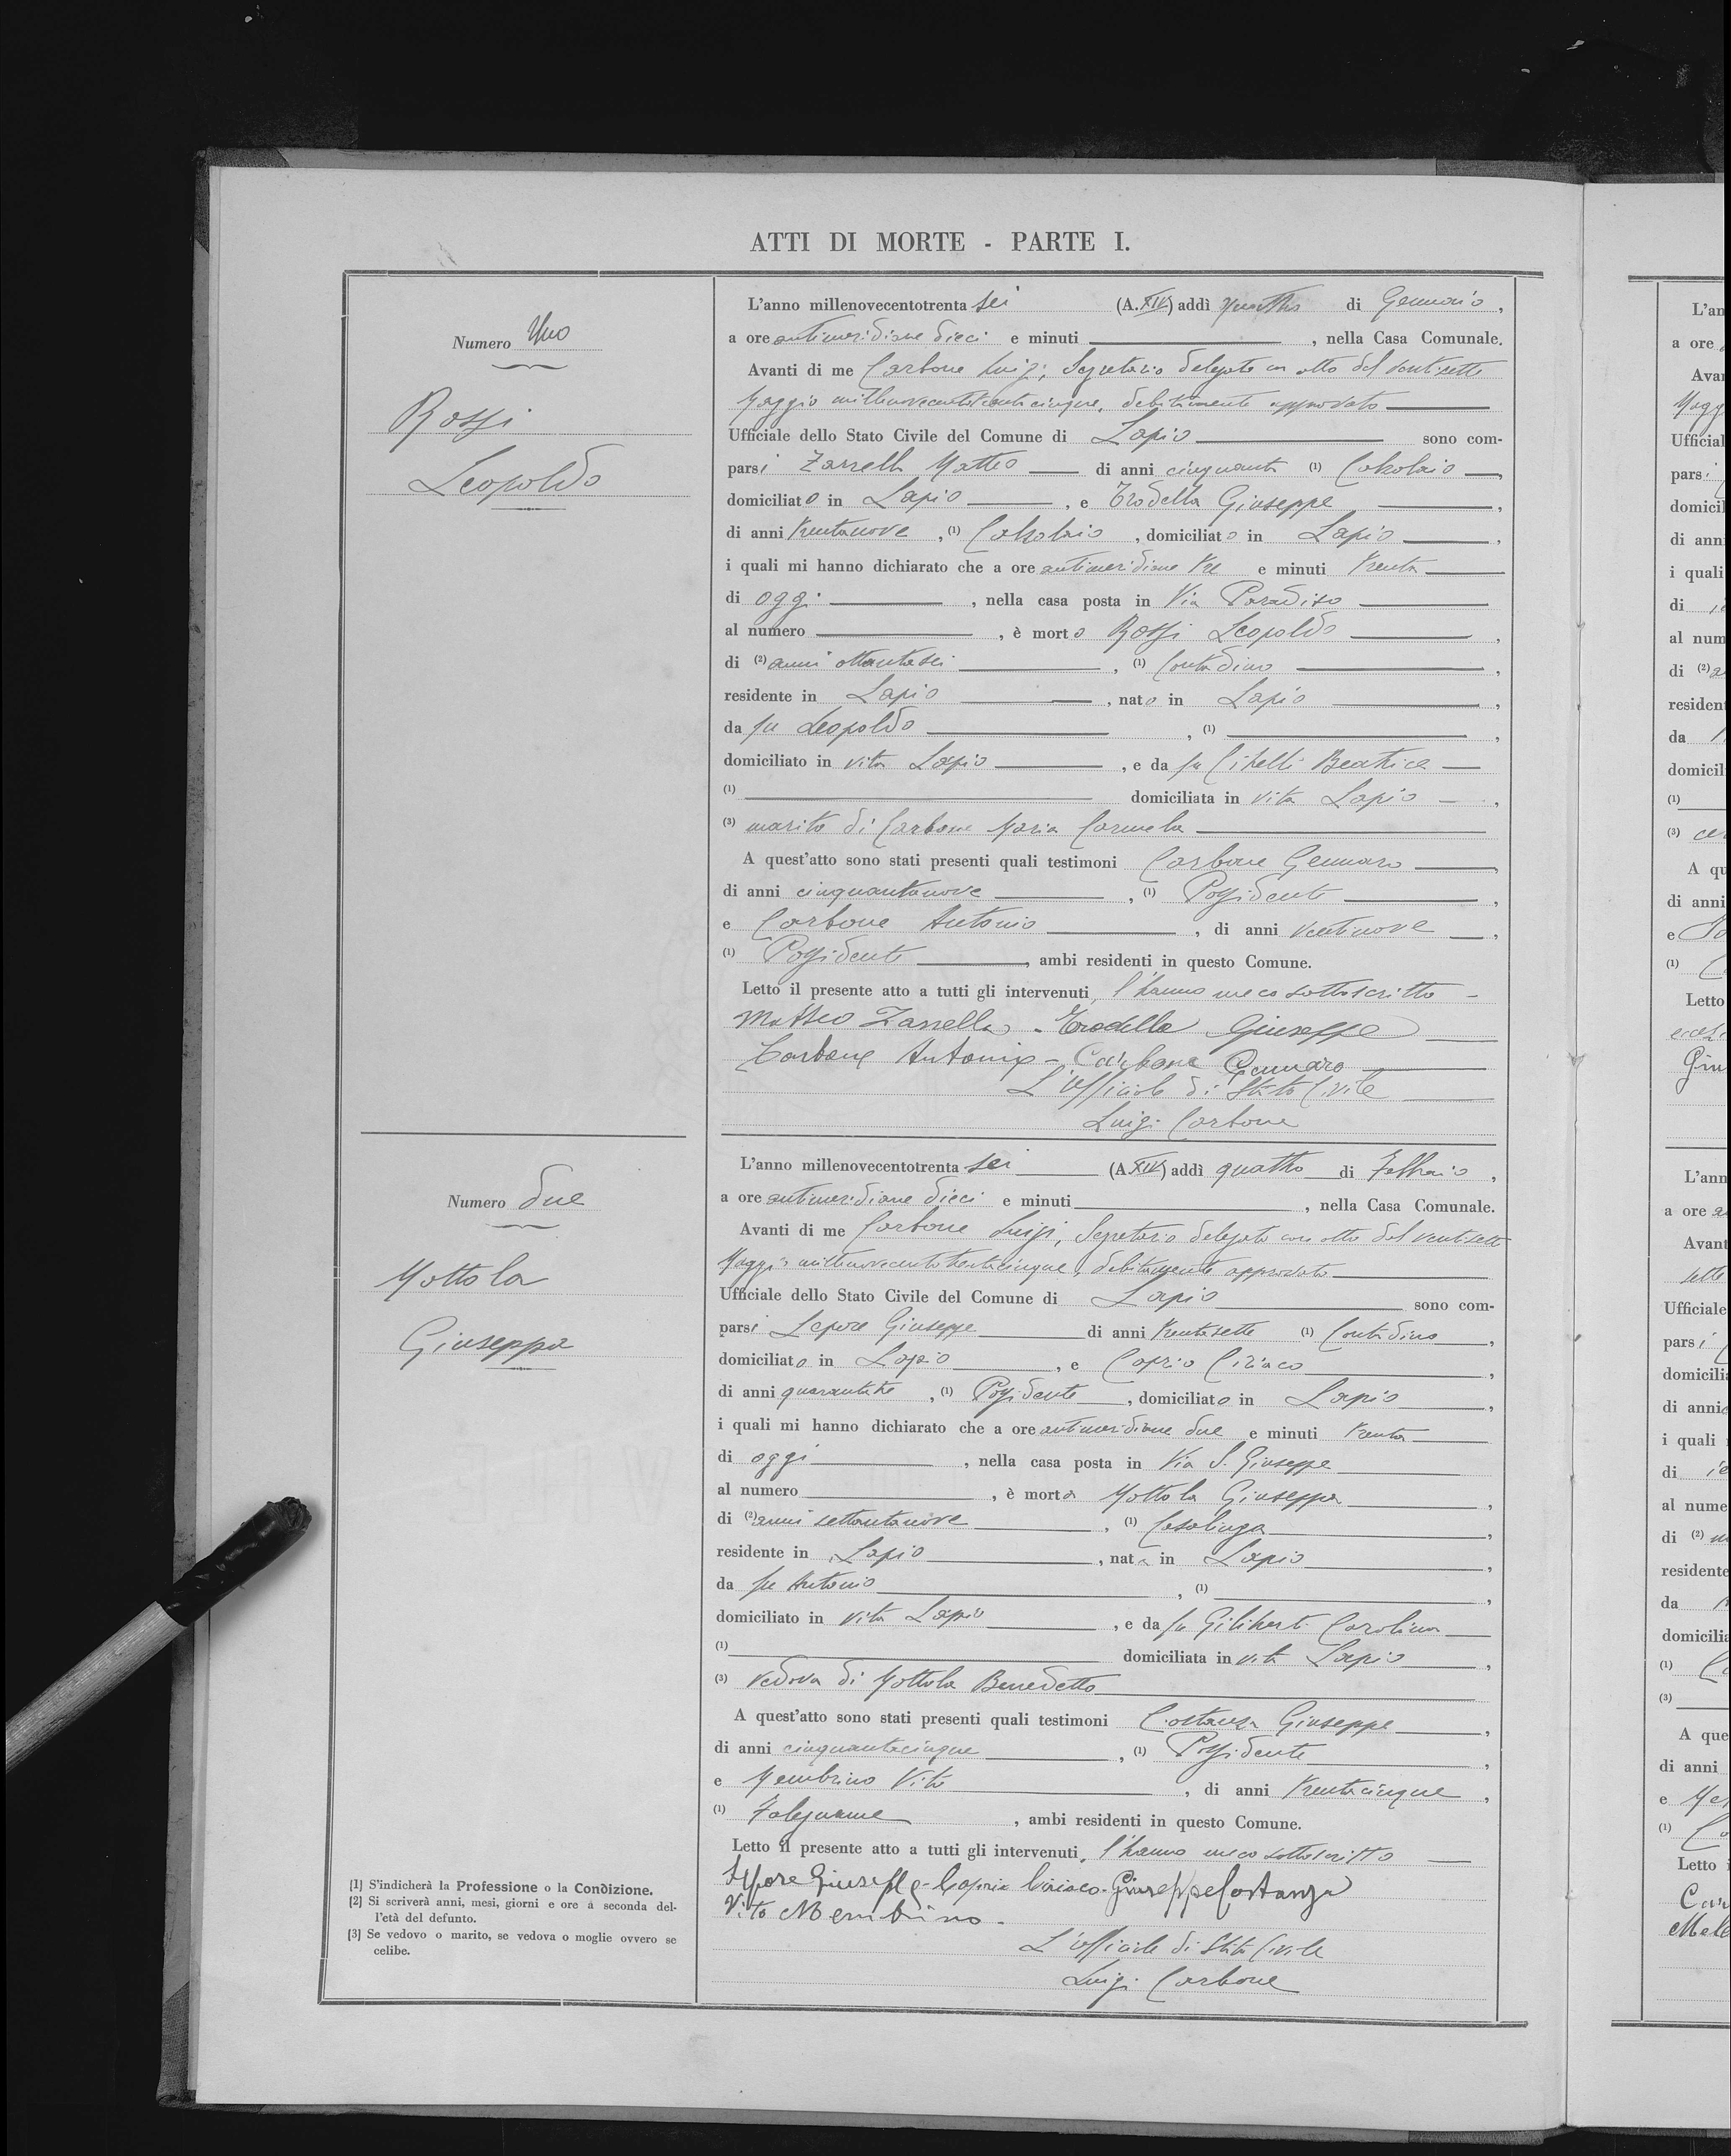 ATTI DI MORTE - PARTE I.
Numero Uno
Rossi
Leopoldo
L'anno millenovecentotrenta sei (A. XIV) addì quattro di Gennaio,
a ore antimeridiane dieci e minuti , nella Casa Comunale.
Avanti di me Carbone Luigi, Segretario delegato con atto del ventisette
Maggio millenovecentotrentacinque, debitamente approvato
Ufficiale dello Stato Civile del Comune di Lapio sono com-
parsi Zarrella Matteo di anni cinquanta (1) Calzolaio,
domiciliato in Lapio, e Trodella Giuseppe,
di anni trentanove, (1) Calzolaio, domiciliato in Lapio,
i quali mi hanno dichiarato che a ore antimeridiane tre e minuti trenta
di oggi, nella casa posta in Via Paradiso
al numero , è morto Rossi Leopoldo,
di (2) anni ottantasei, (1) Contadino,
residente in Lapio, nato in Lapio,
da fu Leopoldo, (1) ,
domiciliato in vita Lapio, e da fu Citelli Beatrice
(1) domiciliata in vita Lapio,
(3) marito di Carbone Maria Carmela
A quest'atto sono stati presenti quali testimoni Carbone Gennaro,
di anni cinquantanove, (1) Possidente,
e Carbone Antonio, di anni ventinove,
(1) Possidente, ambi residenti in questo Comune.
Letto il presente atto a tutti gli intervenuti, l'hanno meco sottoscritto
Matteo Zarrella - Trodella Giuseppe
Carbone Antonio - Carbone Gennaro
L'Ufficiale di Stato Civile
Luigi Carbone
Numero due
Mottola
Giuseppa
L'anno millenovecentotrenta sei (A. XIV) addì quattro di Febbraio,
a ore antimeridiane dieci e minuti , nella Casa Comunale.
Avanti di me Carbone Luigi, Segretario delegato con atto del ventisette
Maggio millenovecentotrentacinque, debitamente approvato
Ufficiale dello Stato Civile del Comune di Lapio sono com-
parsi Lepore Giuseppe di anni trentasette (1) Contadino,
domiciliato in Lapio, e Caprio Ciriaco,
di anni quarantatre, (1) Possidente, domiciliato in Lapio,
i quali mi hanno dichiarato che a ore antimeridiane due e minuti trenta
di oggi, nella casa posta in Via S. Giuseppe
al numero , è morta Mottola Giuseppa,
di (2) anni settantanove, (1) Casalinga,
residente in Lapio, nata in Lapio,
da fu Antonio, (1) ,
domiciliato in vita Lapio, e da fu Giliberti Carolina
(1) domiciliata in vita Lapio,
(3) vedova di Mottola Benedetto
A quest'atto sono stati presenti quali testimoni Costanza Giuseppe,
di anni cinquantacinque, (1) Possidente,
e Membrino Vito, di anni trentacinque,
(1) Falegname, ambi residenti in questo Comune.
Letto il presente atto a tutti gli intervenuti, l'hanno meco sottoscritto
Lepore Giuseppe - Caprio Ciriaco - Giuseppe Costanza
Vito Membrino.
L'ufficiale di Stato Civile
Luigi Carbone
[1] S'indicherà la Professione o la Condizione.
[2] Si scriverà anni, mesi, giorni e ore a seconda del-
l'età del defunto.
[3] Se vedovo o marito, se vedova o moglie ovvero se
celibe.